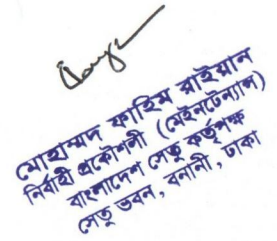 মোহাম্মদ ফাহিম রাইয়ান
নির্বাহী প্রকৌশলী (মেইনটেন্যান্স)
বাংলাদেশ সেতু কর্তৃপক্ষ
সেতু ভবন, বনানী, ঢাকা